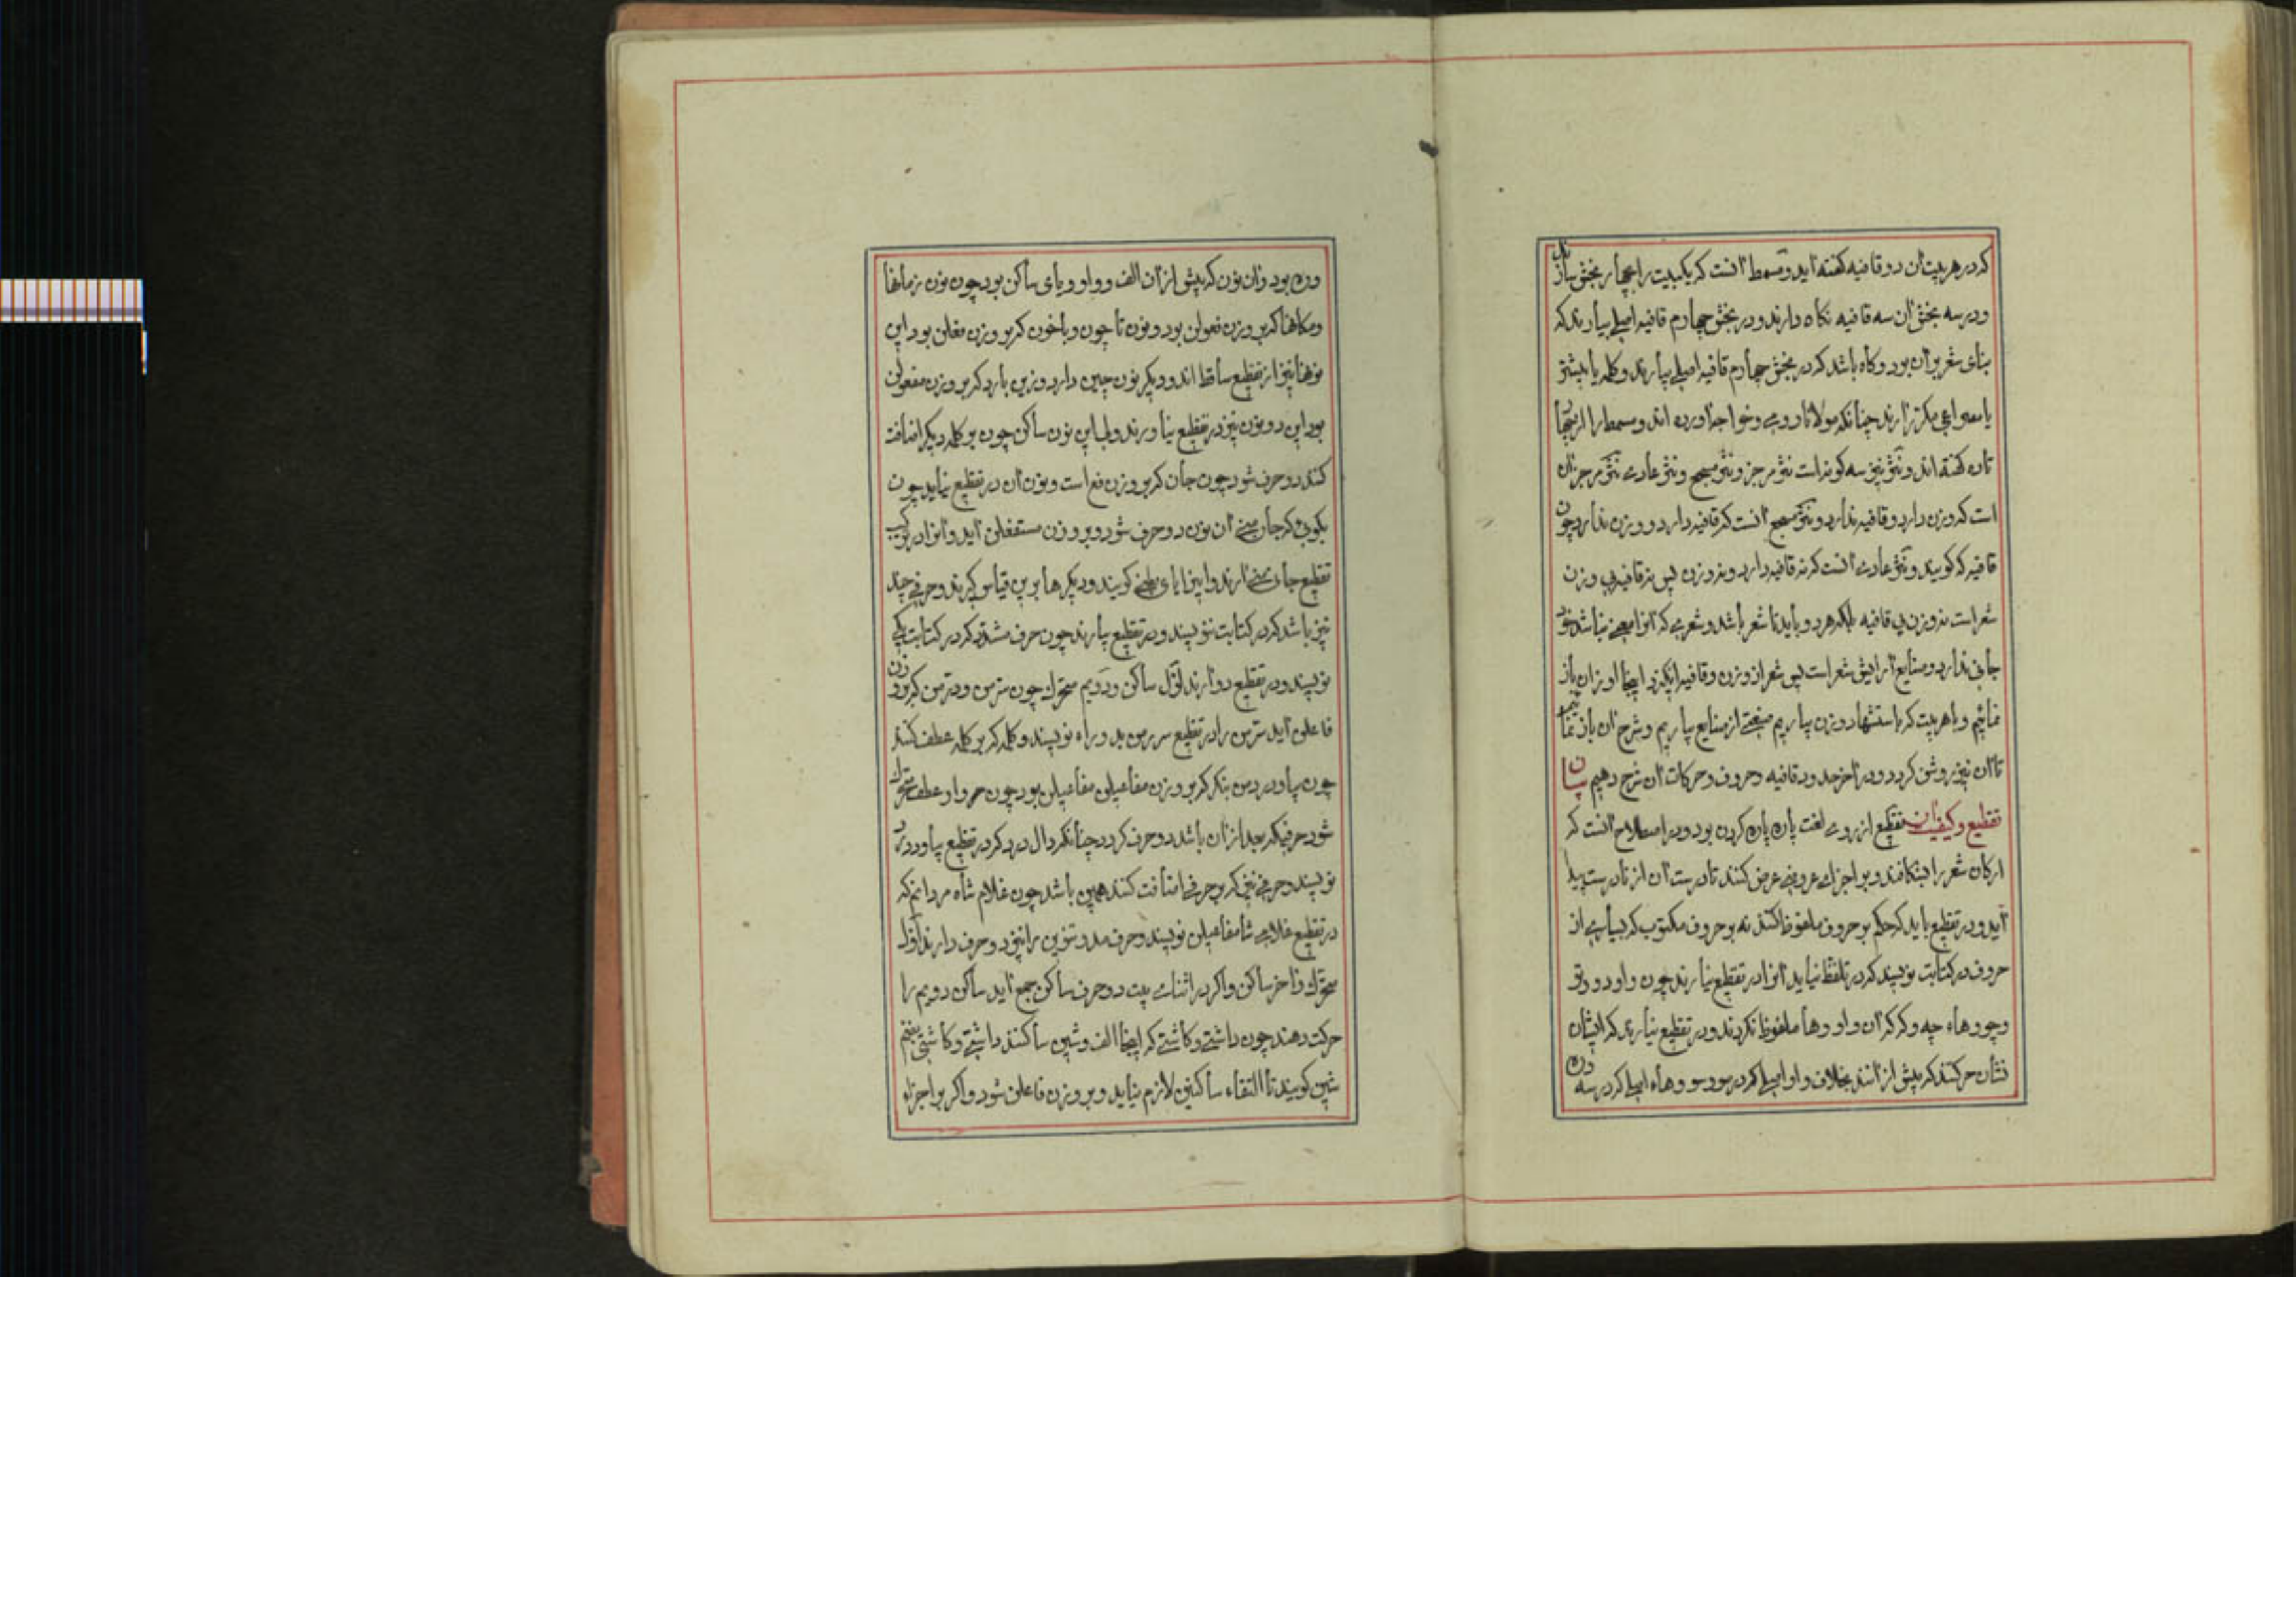 که در هر بیت آن دو قافیه گفته آید و مسمط آنست که یکبیت را بچهار بخش سازند
و در سه بخش آن سه قافیه نگاه دارند و در بخش چهارم قافیه اصلی بیارند که
بنای شعر بر آن بود و گاه باشد که در بخش چهارم قافیه اصلی بیارند و کلمه یا بیشتر
یا مصراعی مکرر آرند چنانکه مولانا رومی و خواجه آورده اند و مسمط را
تازه گفته اند و نثر نیز سه گونه است نثر مرجز و نثر مسجع و نثر عاری نثر مرجز آن
است که وزن دارد و قافیه ندارد و نثر مسجع آنست که قافیه دارد و وزن ندارد چون
قافیه که گویند و نثر عاری آنست که نه قافیه دارد و نه وزن پس نه قافیه بی وزن
شعر است نه وزن بی قافیه بلکه هر دو باید تا شعر باشد و شعری که آنرا معنی نباشد خود
جائی ندارد و صنایع آرایش شعر است پس شعر از وزن و قافیه انگیزد اینجا اوزان باز
نمائیم و با هر بیت که باستشهاد وزن بیاریم صنعتی از صنایع بیاریم و شرح آن باز نمائیم
تا آن نیز روشن گردد و در آخر حدود قافیه و حروف و حرکات آن شرح دهیم بیان
تقطیع و کیفیت آن تقطیع از روی لغت پاره پاره کردن بود و در اصطلاح آنست که
ارکان شعر را بشکافند و بر اجزای عروض عرض کنند تا درست آن از نادرست پیدا
آید و در تقطیع باید که حکم بر حروف ملفوظ کنند نه بر حروف مکتوب که بسیاری از
حروف در کتابت نویسند که در تلفظ نیاید آنرا در تقطیع نیارند چون واو دو و تو
و چو و هاء چه و که که آن واو و ها ملفوظ نگردند و در تقطیع نیارند که ایشان
نشان حرکتند که پیش از آنند بخلاف واو اصلی که در سود و هاء اصلی که در سه
و ره بود و آن نون که پیش از آن الف و واو و یای ساکن بود چون نون زمانها
و مکانها که بر وزن فعولن بود و نون تا چون و با خون که بر وزن فعلن بود این
نونها نیز از تقطیع ساقط اند و دیگر نون چین دارد و زین بارد که بر وزن مفعولن
بود این دو نون نیز در تقطیع نیاورند ولی این نون ساکن چون بر کلمه دیگر اضافت
کنند دو حرف شود چون جان که بر وزن فع است و نون آن در تقطیع نیاید چون
بگویی که جان منی آن نون دو حرف شود و بر وزن مستفعلن آید و آنرا در
تقطیع جانی منی آرند و این را یای بطنی گویند و دیگرها برین قیاس گیرند و حرفی چند
نیز باشد که در کتابت ننویسند و در تقطیع بیارند چون حرف مشدد که در کتابت یکی
نویسند و در تقطیع دو آرند اول ساکن و دویم متحرک چون سرمن و درمن که بر وزن
فاعلن آید سرمن را در تقطیع سررمن بدو راء نویسند و کلمه که بر کلمه عطف کنند
چون بیا و در من بنگر که بر وزن مفاعیلن مفاعیلن بود چون واو عطف متحرک
شود حرفیکه بعد از آن باشد دو حرف گردد چنانکه دال در که در تقطیع بیاودد
نویسند و حرفی نیز که بر حرفی اضافت کنند همین باشد چون غلام شاه مردانم که
در تقطیع غلامی شا مفاعیلن نویسند و حرف مد و تنوین را نیز دو حرف دارند اول
متحرک و آخر ساکن و اگر در اثنای بیت دو حرف ساکن جمع آید ساکن دویم را
حرکت دهند چون داشتی و کاشتی که اینجا الف و شین ساکنند داشتی و کاشتی بفتح
شین گویند تا التقاء ساکنین لازم نیاید و بر وزن فاعلن شود و اگر بر اجزاء